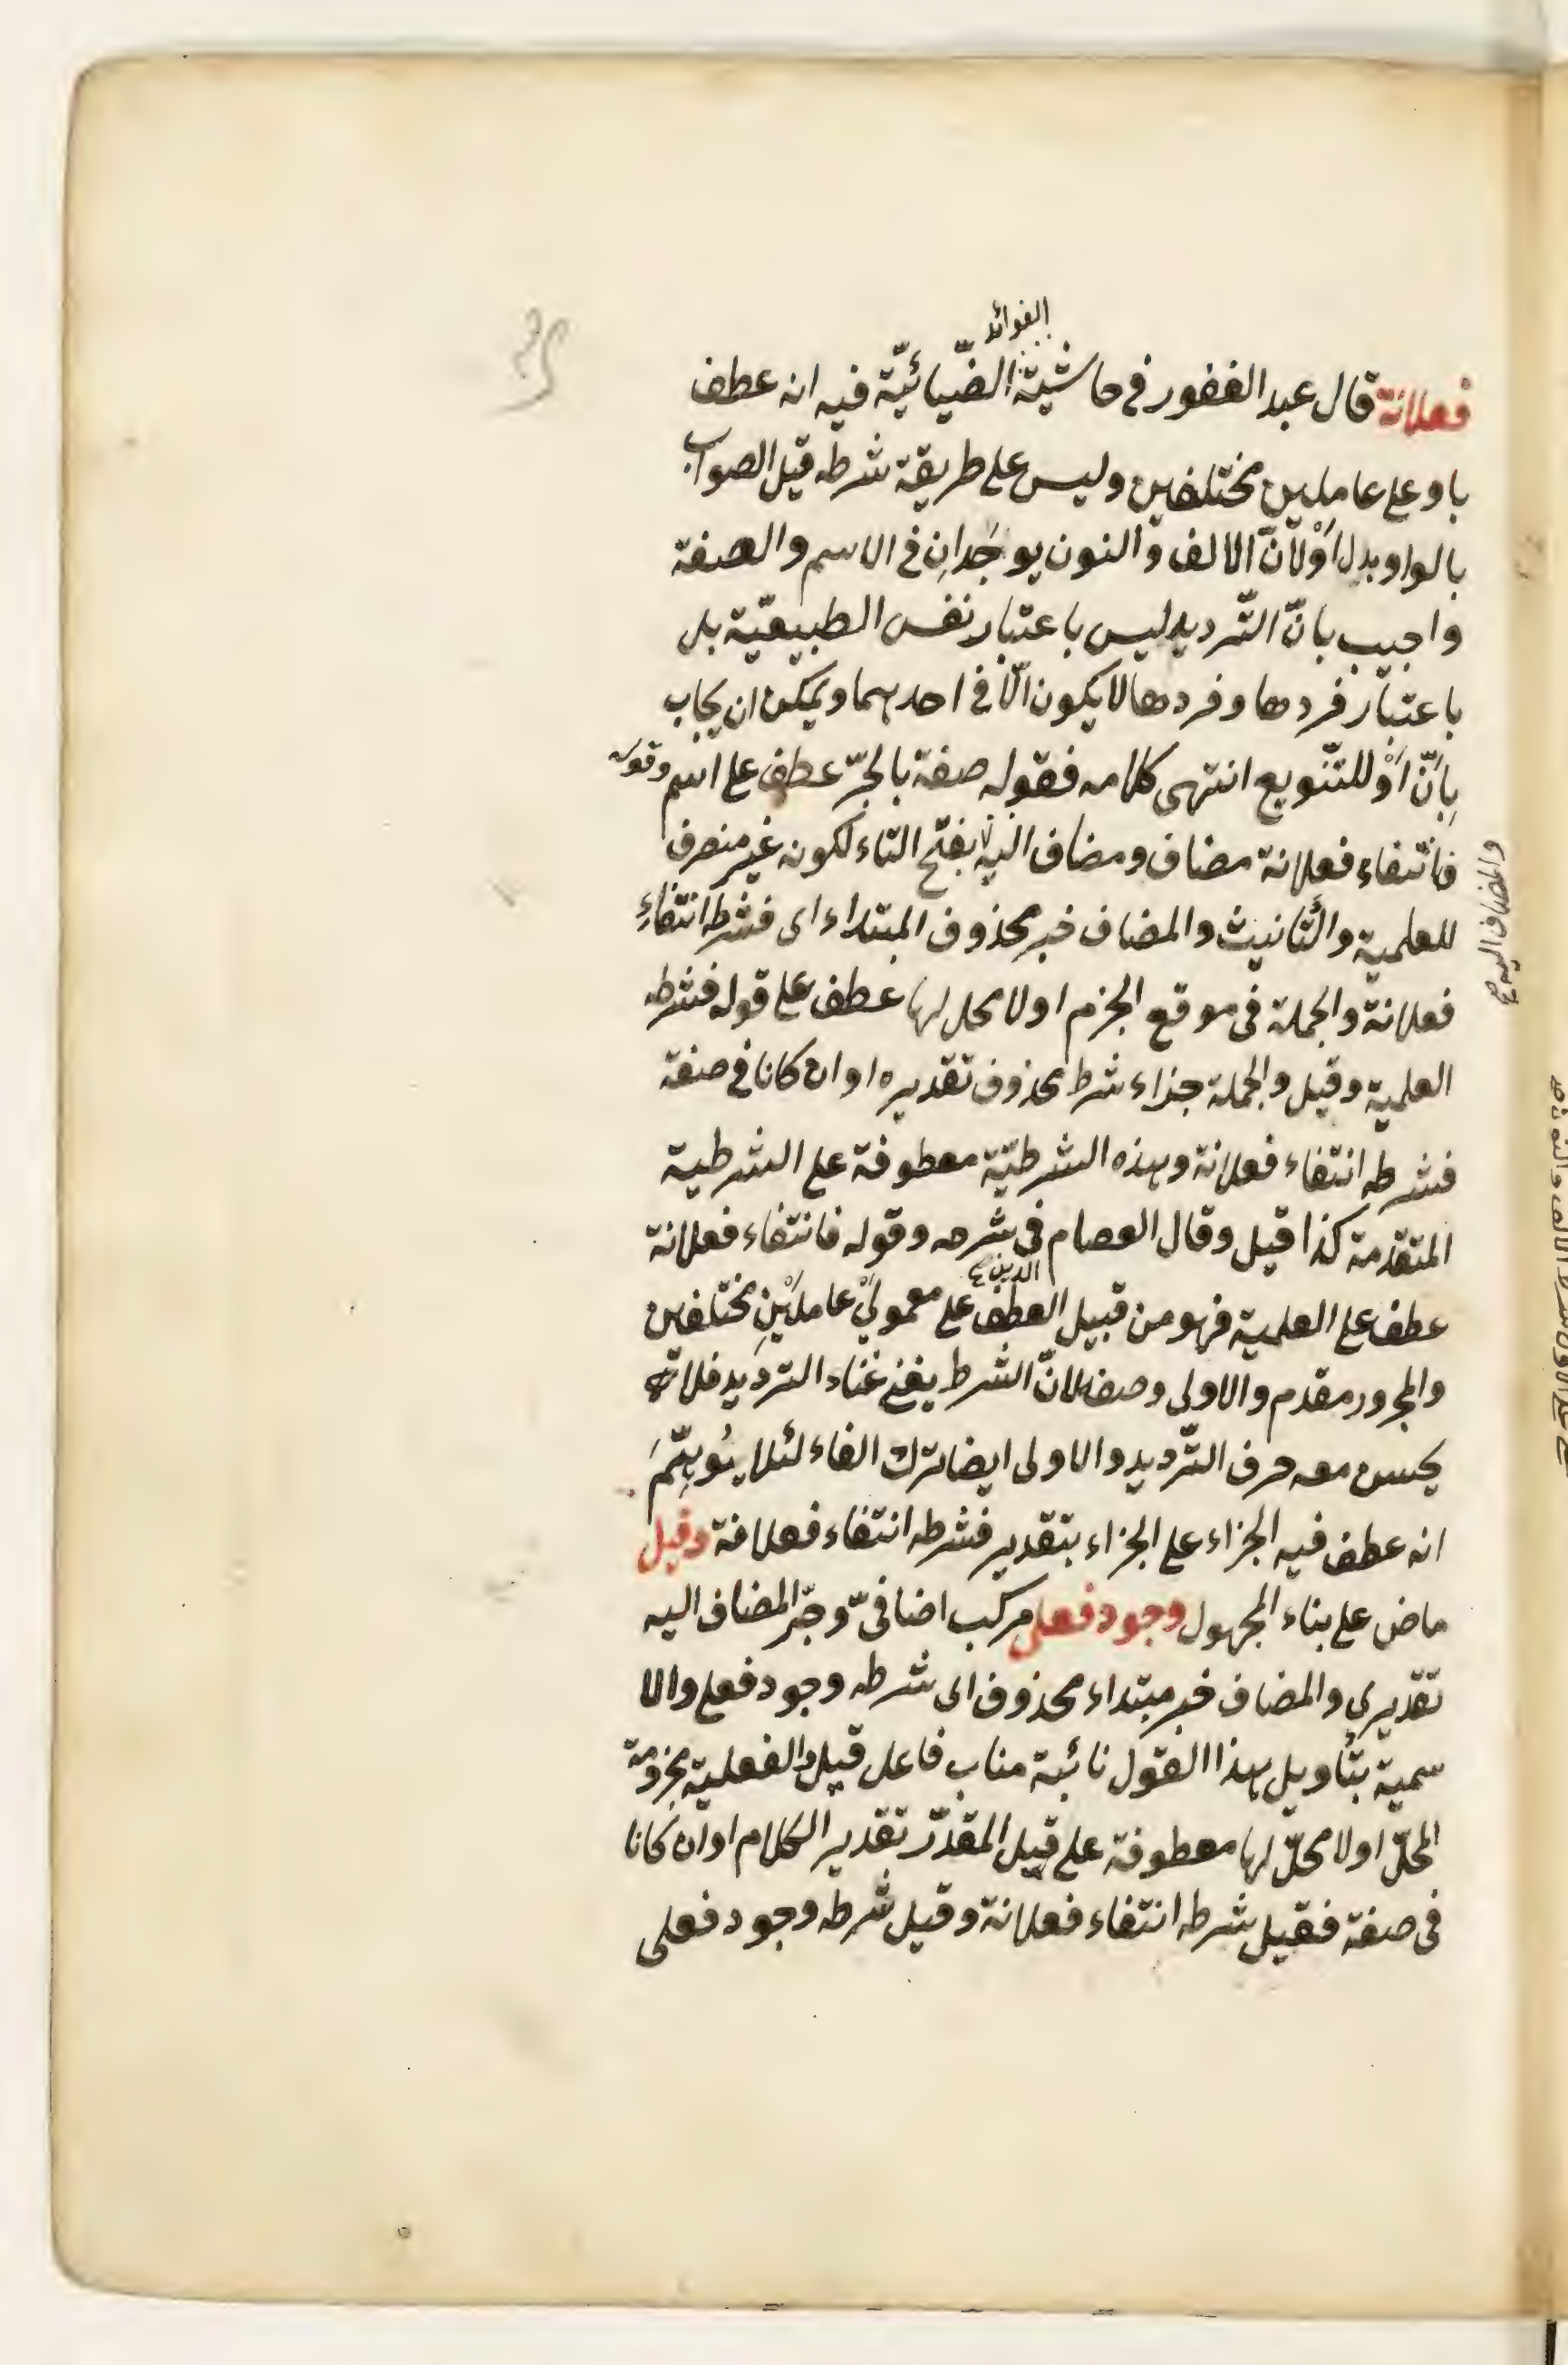 الفوائد
فعلانة قال عبد الغفور في حاشية الضّيائيّة فيه انه عطف
باو على عاملين مختلفين وليس على طريقة شرطه قيل الصواب
بالواو بدل اَوْ لانّ الالف والنون يوجَدانِ في الاسم والصفة
واجيب بانّ التّرديد ليس باعتبار نفس الطبيعيّة بل
باعتبار فردها وفردها لا يكون الّا في احدهما ويمكن ان يجاب
بِاَنّ اَوْ للتنّويع انتهى كلامه فقوله صفة بالجرّ عطف على اسم وقوله
فانتفاء فعلانة مضاف ومضاف اليه بفتح التاء لكونه غير منصرف
والمضاف اليه صح
للعلمية والتّأنيث والمضاف خبر محذوف المبتداء اى فشرطه انتفاءِ
فعلانة والجملة في موقع الجزم اولا محل لها عطف على قوله فشرطه
العلمية وقيل والجملة جزاء شرط محذوف تقديره او ان كانا في صفة
فشرطه انتفاء فعلانة وهذه الشرطيّة معطوفة على الشرطية
المتقدمة كذا قيل وقال العصام في شرحه وقوله فانتفاء فعلانة
الدين
عطف على العلمية فهو من قبيل العطف على معموليْ عاملَيْنِ مختلفين
والمجرور مقدم والاولى وصفا لانّ الشرط يغنى غناء الترديد فلا
يحسن معه حرف التّرديد والاولى ايضا ترك الفاء لئلا يُوهِمَ
انه عطف فيه الجزاء على الجزاء بتقدير فشرطه انتفاء فعلانة وقيل
ماض على بناء المجهول وجود فعلى مركب اضافىّ وجرّ المضاف اليه
تقديرى والمضاف خبر مبتداء محذوف اى شرطه وجود فعلى والا
سمية بتأويل هذا القول نائبة مناب فاعل قيل والفعلية مجزومة
المحلّ اولا محلّ لها معطوفة على قيل المقدّر تقدير الكلام او ان كانا
في صفة فقيل شرطه انتفاء فعلانة وقيل شرطه وجود فعلى